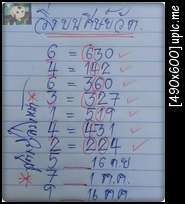 วิ่งบนศีรษะวัด
6 = 630
4 = 142
6 = 360
3 = 327
1 = 519
4 = 431
2 = 224
5 16 กย
7 1 ต.ค.
9 16 ตค
[490x600] upic.me